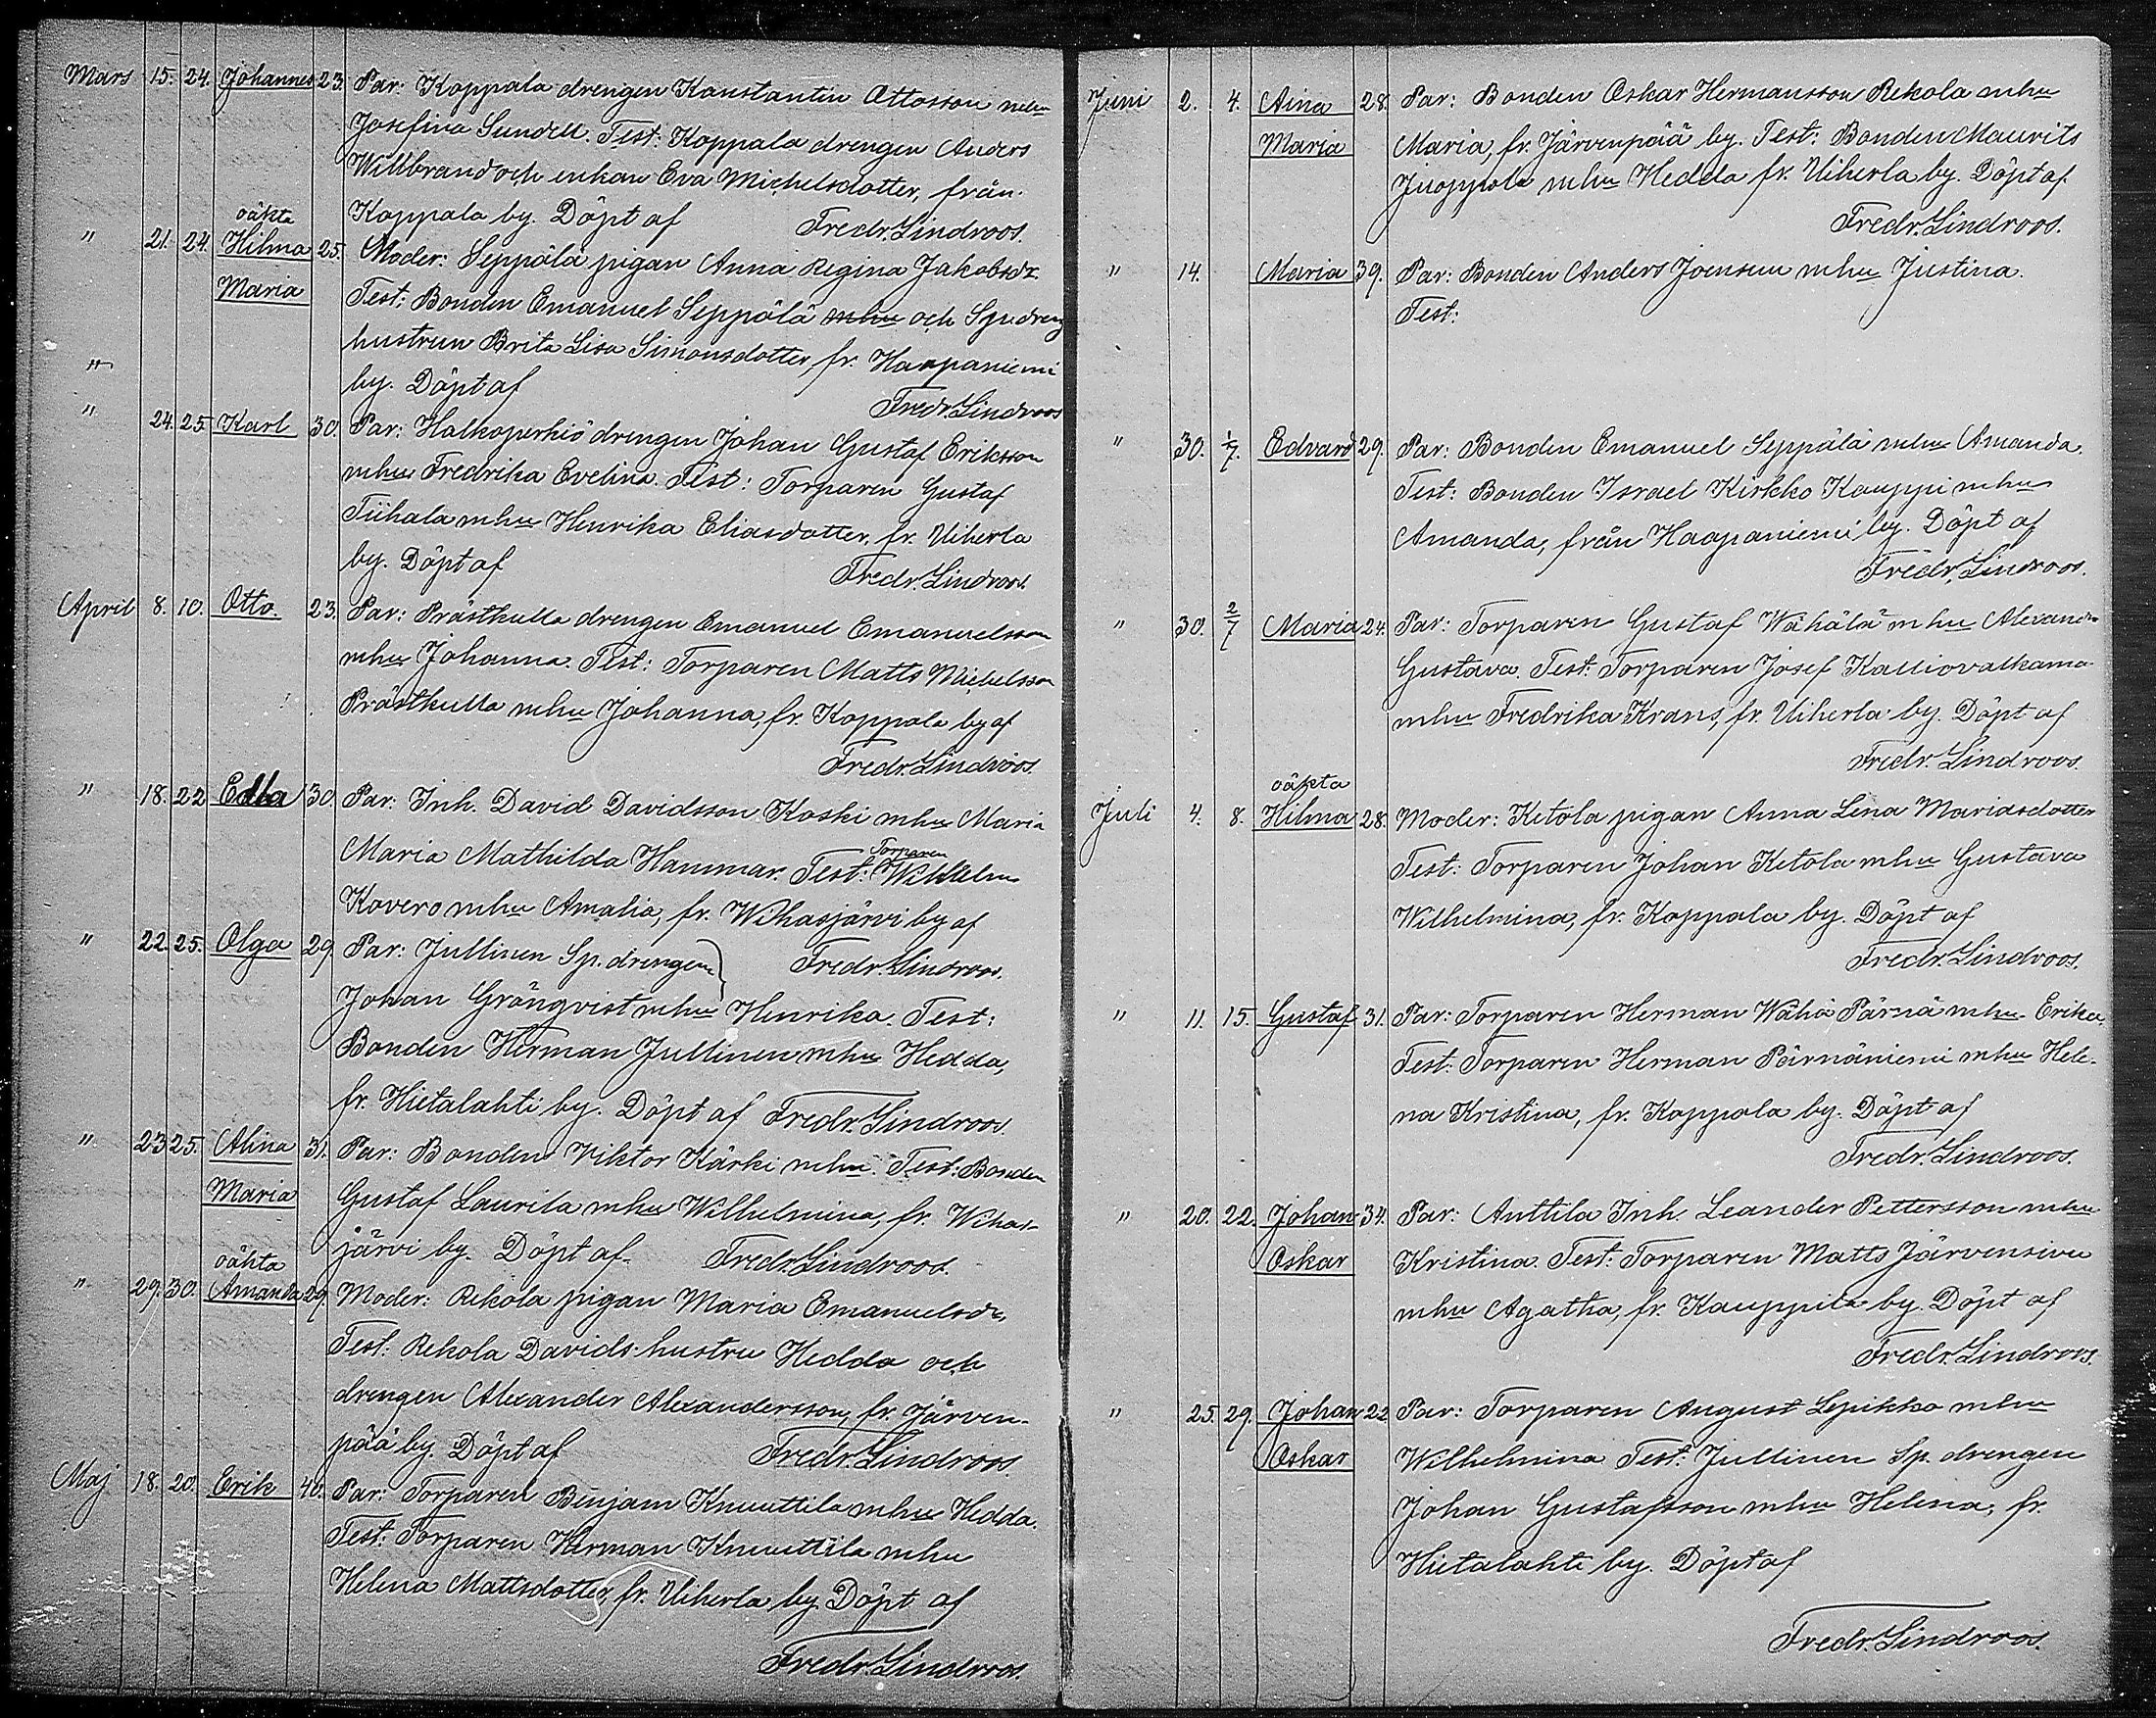 Mars 15. 24. Johannes 23. Par: Koppala drengen Konstantin Ottosson mhu
Josefina Sundell. Test: Koppala drengen Anders
Willbrand och enkan Eva Michelsdotter, från
Koppala by. Döpt af Fredr. Lindroos.
oäkta
" 21. 24. Hilma 25. Moder: Seppälä pigan Anna Regina Jakobsdr
Maria Test: Bonden Emanuel Seppälä mhu och Sp.dreng
hustrun Brita Lisa Simonsdotter, fr. Haapaniemi
" by. Döpt af Fredr. Lindroos
" 24. 25. Karl 30. Par: Halkoperkiö drengen Johan Gustaf Eriksson
mhu Fredrika Evelina. Test: Torparen Gustaf
Tiihala mhu Henrika Eliasdotter, fr. Uiherla
by. Döpt af Fredr. Lindroos.
April 8. 10. Otto. 23. Par: Prästkulla drengen Emanuel Emanuelsson
mhu Johanna. Test: Torparen Matts Michelsson
Prästkulla mhu Johanna, fr. Koppala by af
Fredr. Lindroos.
" 18. 22 Edla 30 Par: Inh. David Davidsson Koski mhu Maria
Maria Mathilda Hammar. Test: Torparen Wilhelm
Kovero mhu Amalia, fr. Wihasjärvi by af
Fredr. Lindroos.
" 22. 25. Olga 29. Par: Jullinen Sp. drengen
Johan Grönqvist mhu Henrika. Test:
Bonden Herman Jullinen mhu Hedda,
fr. Hietalahti by. Döpt af Fredr. Lindroos.
" 23 25. Alina 31. Par: Bonden Viktor Kärki mhu. Test: Bonden
Maria Gustaf Laurila mhu Wilhelmina, fr. Wihas-
järvi by. Döpt af Fredr. Lindroos.
oäkta
" 29. 30. Amanda 29. Moder: Rekola pigan Maria Emanuelsdr,
Test: Rekola Davids hustru Hedda och
drengen Alexander Alexandersson, fr. Järven-
pää by. Döpt af Fredr. Lindroos.
Maj 18. 20. Erik 40. Par: Torparen Benjam Knuuttila mhu Hedda.
Test: Torparen Herman Knuuttila mhu
Helena Mattsdotter, fr. Uiherla by. Döpt af
Fredr. Lindroos.
Juni 2. 4. Aina 28. Par: Bonden Oskar Hermansson Rekola mhu
Maria Maria, fr. Järvenpää by. Test: Bonden Maurits
Juoppola mhu Hedda fr. Uiherla by. Döpt af
Fredr. Lindroos.
" 14. Maria 39. Par: Bonden Anders Joensuu mhu Justina.
Test:
" 30. 1/7. Edvard 29. Par: Bonden Emanuel Seppälä mhu Amanda.
Test: Bonden Israel Kirkko Kauppi mhu
Amanda, från Haapaniemi by. Döpt af
Fredr. Lindroos.
" 30. 2/7 Maria 24. Par: Torparen Gustaf Wähälä mhu Alexandra
Gustava. Test: Torparen Josef Kalliovalkama
mhu Fredrika Krans, fr. Uiherla by. Döpt af
Fredr. Lindroos.
oäkta
Juli 4. 8. Hilma 28. Moder: Ketola pigan Anna Lena Mariasdotter
Test: Torparen Johan Ketola mhu Gustava
Wilhelmina, fr. Koppala by. Döpt af
Fredr. Lindroos.
" 11. 15. Gustaf 31. Par: Torparen Herman Wähä Pärnä mhu Erika.
Test: Torparen Herman Pärnäniemi mhu Hele-
na Kristina, fr. Koppala by. Döpt af
Fredr. Lindroos.
" 20. 22. Johan 34. Par: Anttila Inh. Leander Pettersson mhu
Oskar Kristina. Test: Torparen Matts Järvensivu
mhu Agatha, fr. Kauppila by. Döpt af
Fredr. Lindroos.
" 25. 29. Johan 22 Par: Torparen August Lepikko mhu
Oskar Wilhelmina Test: Jullinen Sp. drengen
Johan Gustafsson mhu Helena, fr.
Hietalahti by. Döpt af
Fredr. Lindroos.